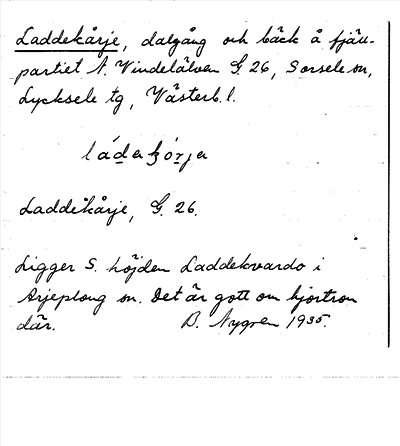 Laddekårje, dalgång och bäck å fjäll-
partiet N. Vindelälven G. 26, Sorsele sn,
Lycksele tg, Västerb. l.
Laddekårje, G. 26.
Ligger S. höjden Laddekvardo i
Arjeplong sn. Det är gott om hjortron
där. B. Nygren 1935.